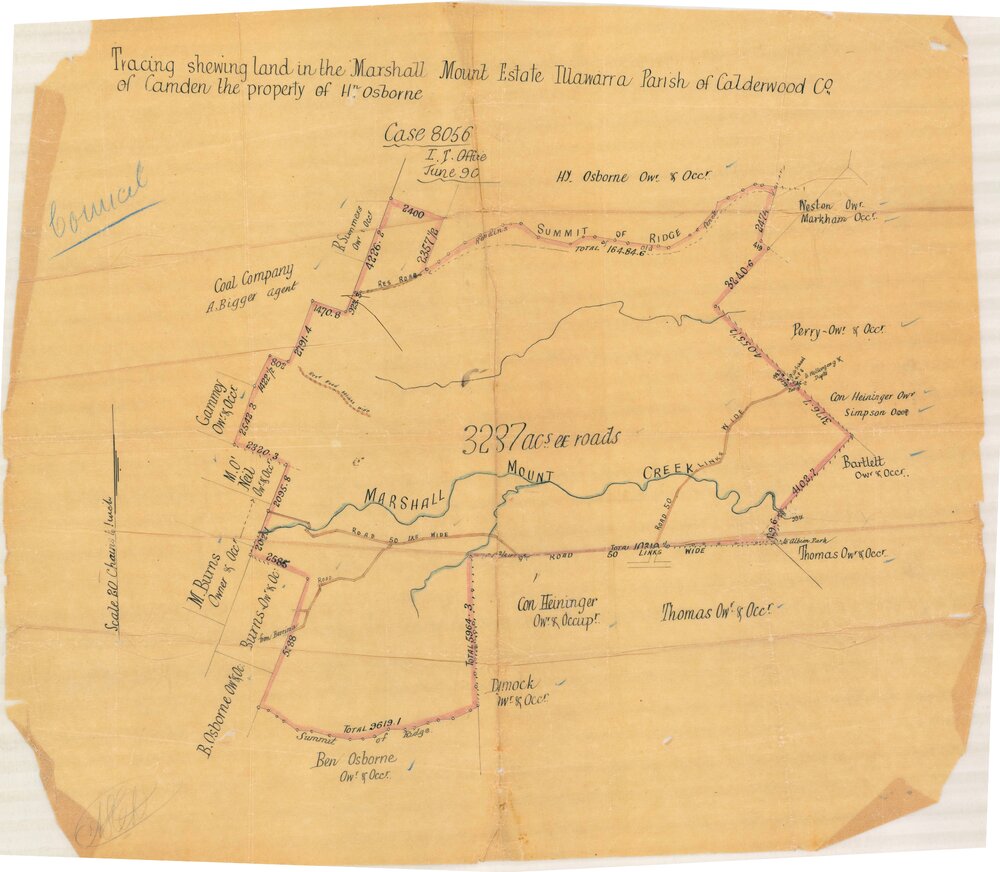 Tracing shewing land in the Marshall Mount Estate Illawarra Parish of Calderwood Co.
of Camden the property of Hy. Osborne
Case 8056
I. T. Office
June 90
Council
Hy. Osborne Owr. & Occr.
Weston Owr.
Markham Occr.
R Summers
Owr & Occr
2400
4226.2
2357½
SUMMIT OF RIDGE
TOTAL 164.84.6
2474
Coal Company
A. Bigger agent
Res Road
3240.6
1470.8
924.5
2191.4
4055½
Perry-Owr. & Occr.
1422½
802
Gammey
Owr & Occr.
2542.8
3126.7
Con Heininger Owr
Simpson Occr
WIDE
3287 acs ex roads
2320.3
M. O'
Neil
Owr & Occr
2095.8
Bartlett
Owr & Occr.
4102.2
MARSHALL MOUNT CREEK
LINKS
ROAD 50
ROAD 50 LKS WIDE
Scale 80 Chains to 1 inch
M Burns
Owner & Occr
2585
ROAD
ROAD
50
LINKS WIDE
to Albion Park
Thomas Owr & Occr.
Burns Owr & Oc
5788
TOTAL 5964.3
Con Heininger
Owr & Occupr.
Thomas Owr. & Occr.
B. Osborne Owr & Oc
Dimock
Owr & Occr.
TOTAL 9619.1
Summit of Ridge
Ben Osborne
Owr & Occr.